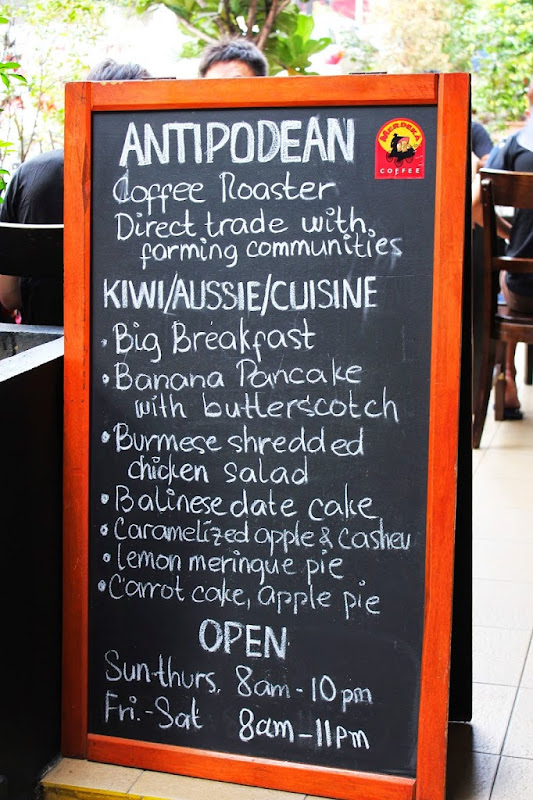 ANTIPODEAN
MERDEKA
COFFEE
Coffee Roaster
Direct trade with
farming communities
KIWI/AUSSIE/CUISINE
• Big Breakfast
• Banana Pancake
with butterscotch
• Burmese shredded
chicken salad
• Balinese date cake
• Caramelized apple & cashew
• lemon meringue pie
• Carrot cake, apple pie
OPEN
Sun-thurs. 8am-10pm
Fri.-Sat 8am-11pm